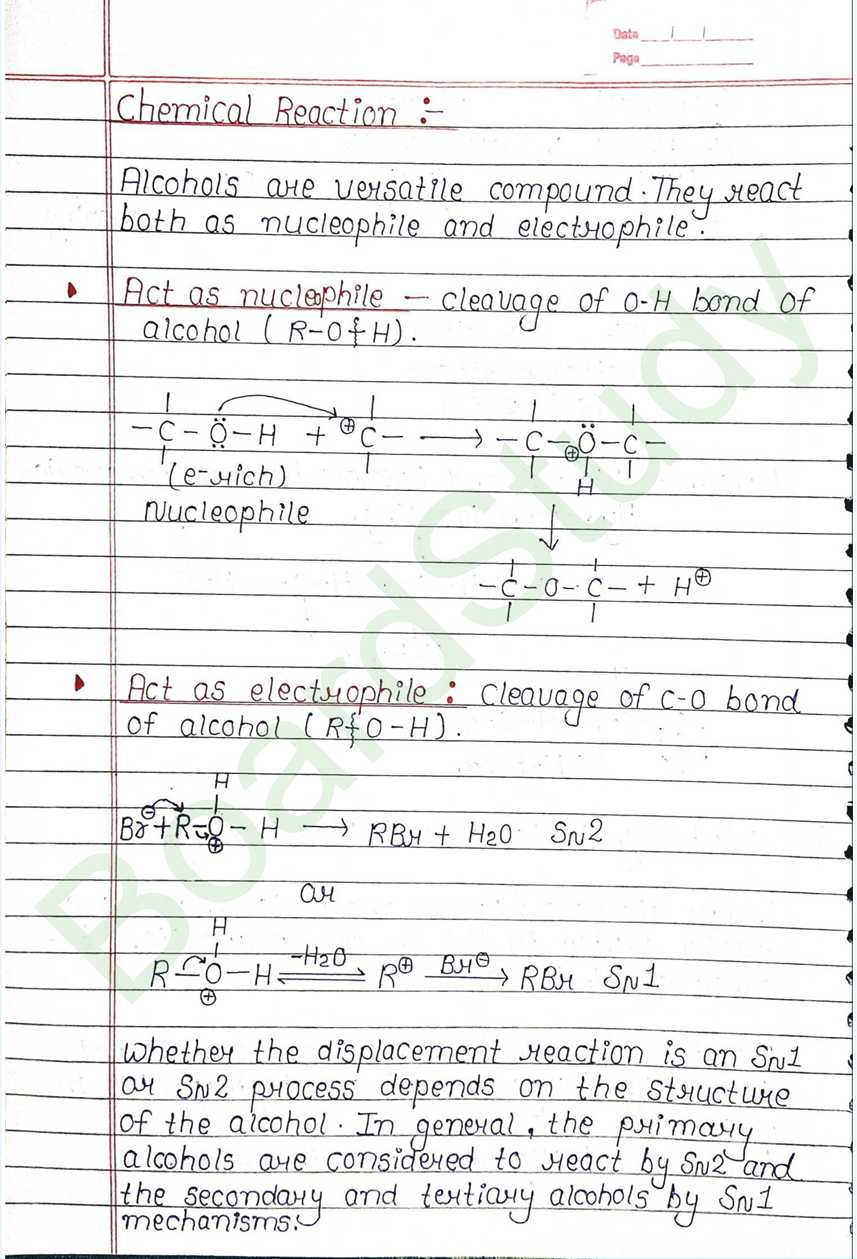 Date / /
Page
Chemical Reaction :-
Alcohols are versatile compound. They react
both as nucleophile and electrophile.
Act as nucleophile - cleavage of O-H bond of
alcohol ( R-O⸾H).
-C-Ö-H + ⊕C- ⟶ -C-Ö⊕-C-
(e-rich)
H
Nucleophile
↓
-C-O-C- + H⊕
Act as electrophile : Cleavage of C-O bond
of alcohol ( R⸾O-H).
H
Br⊖ + R-O⊕-H ⟶ RBr + H2O SN2
or
H
R-O⊕-H ⇌ -H2O R⊕ Br⊖ ⟶ RBr SN1
Whether the displacement reaction is an SN1
or SN2 process depends on the structure
of the alcohol. In general, the primary
alcohols are considered to react by SN2 and
the secondary and tertiary alcohols by SN1
mechanisms.
BoardStudy